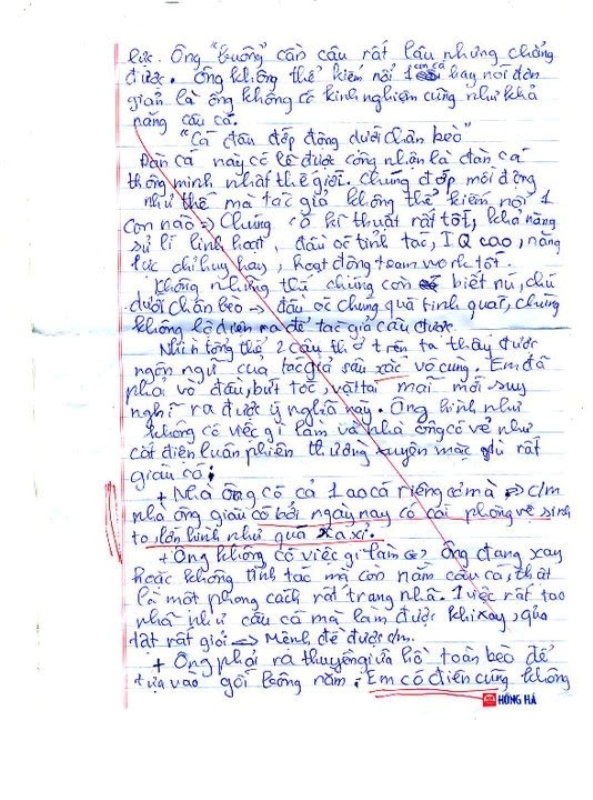 lực. Ông "buông" cần câu rất lâu nhưng chẳng
được. Ông không thể kiếm nổi 1 con cá hay nói đơn
giản là ông không có kinh nghiệm cũng như khả
năng câu cá.
"Cá đâu đớp động dưới chân bèo"
Đàn cá này có lẽ được công nhận là đàn cá
thông minh nhất thế giới. Chúng đớp mồi động
như thế mà tác giả không thể kiếm nổi 1
con nào => Chúng có kĩ thuật rất tốt, khả năng
sử lí linh hoạt, đầu óc tỉnh táo, IQ cao, năng
lực chỉ huy hay, hoạt động team work tốt.
Không những thế chúng còn biết nú, chú
dưới chân bèo -> đầu óc chúng quá tinh quái, chúng
không lộ diện ra để tác giả câu được.
Nhìn tổng thể 2 câu thơ ở trên ta thấy được
ngôn ngữ của tác giả sâu xác vô cùng. Em đã
phải vò đầu, bứt tóc, vặt tai mãi mới suy
nghĩ ra được ý nghĩa này. Ông hình như
không có việc gì làm và nhà ông có vẻ như
cắt điện luân phiên thường xuyên mặc dù rất
giàu có:
+ Nhà ông có cả 1 ao cá riêng cơ mà => c/m
nhà ông giàu có bởi ngày nay có cái phòng vệ sinh
to, lớn hình như quá xa xỉ.
+ Ông không có việc gì làm vì ông đang say
hoặc không tỉnh táo mà còn nằm câu cá, thật
là một phong cách rất trang nhã. 1 việc rất tao
nhã như câu cá mà làm được khi xay, quả
đạt rất giỏi => Mệnh đề được c/m.
+ Ông phải ra thuyền giữa hồ toàn bèo để
tựa vào gối buông nằm. Em có điên cũng không
HỒNG HÀ